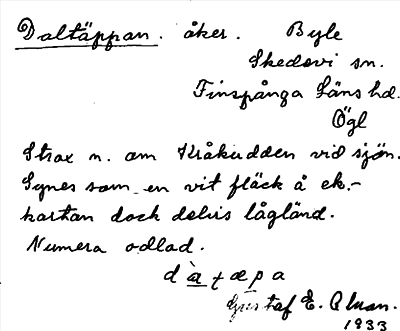 Daltäppan. åker. Byle
Skedevi sn.
Finspånga Läns hd.
Ögl
Strax n. om Kråkudden vid sjön.
Synes som en vit fläck å ek.-
kartan dock delvis lågländ.
Numera odlad.
d à ṭ æ p a
Gustaf E. Olsson.
1933